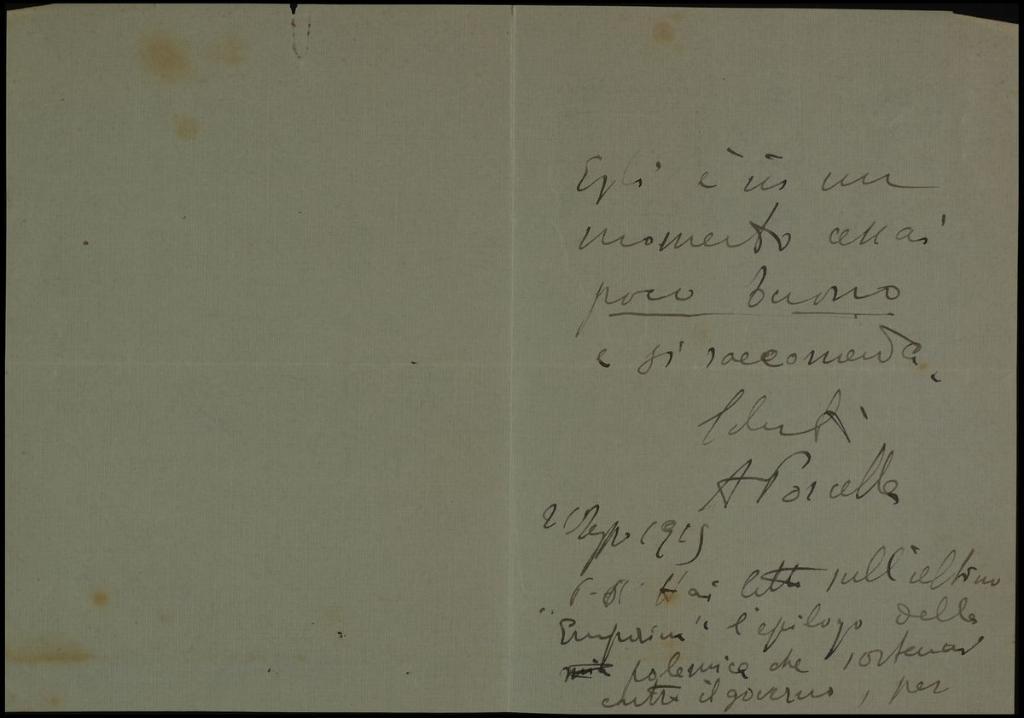 Egli è in un
momento assai
poco buono
e si raccomanda.
Saluti
A Porcella
1919
P.S. Hai letto sull'ultimo
"Emporium" l'epilogo della
mia polemica che sostenni
contro il governo, per